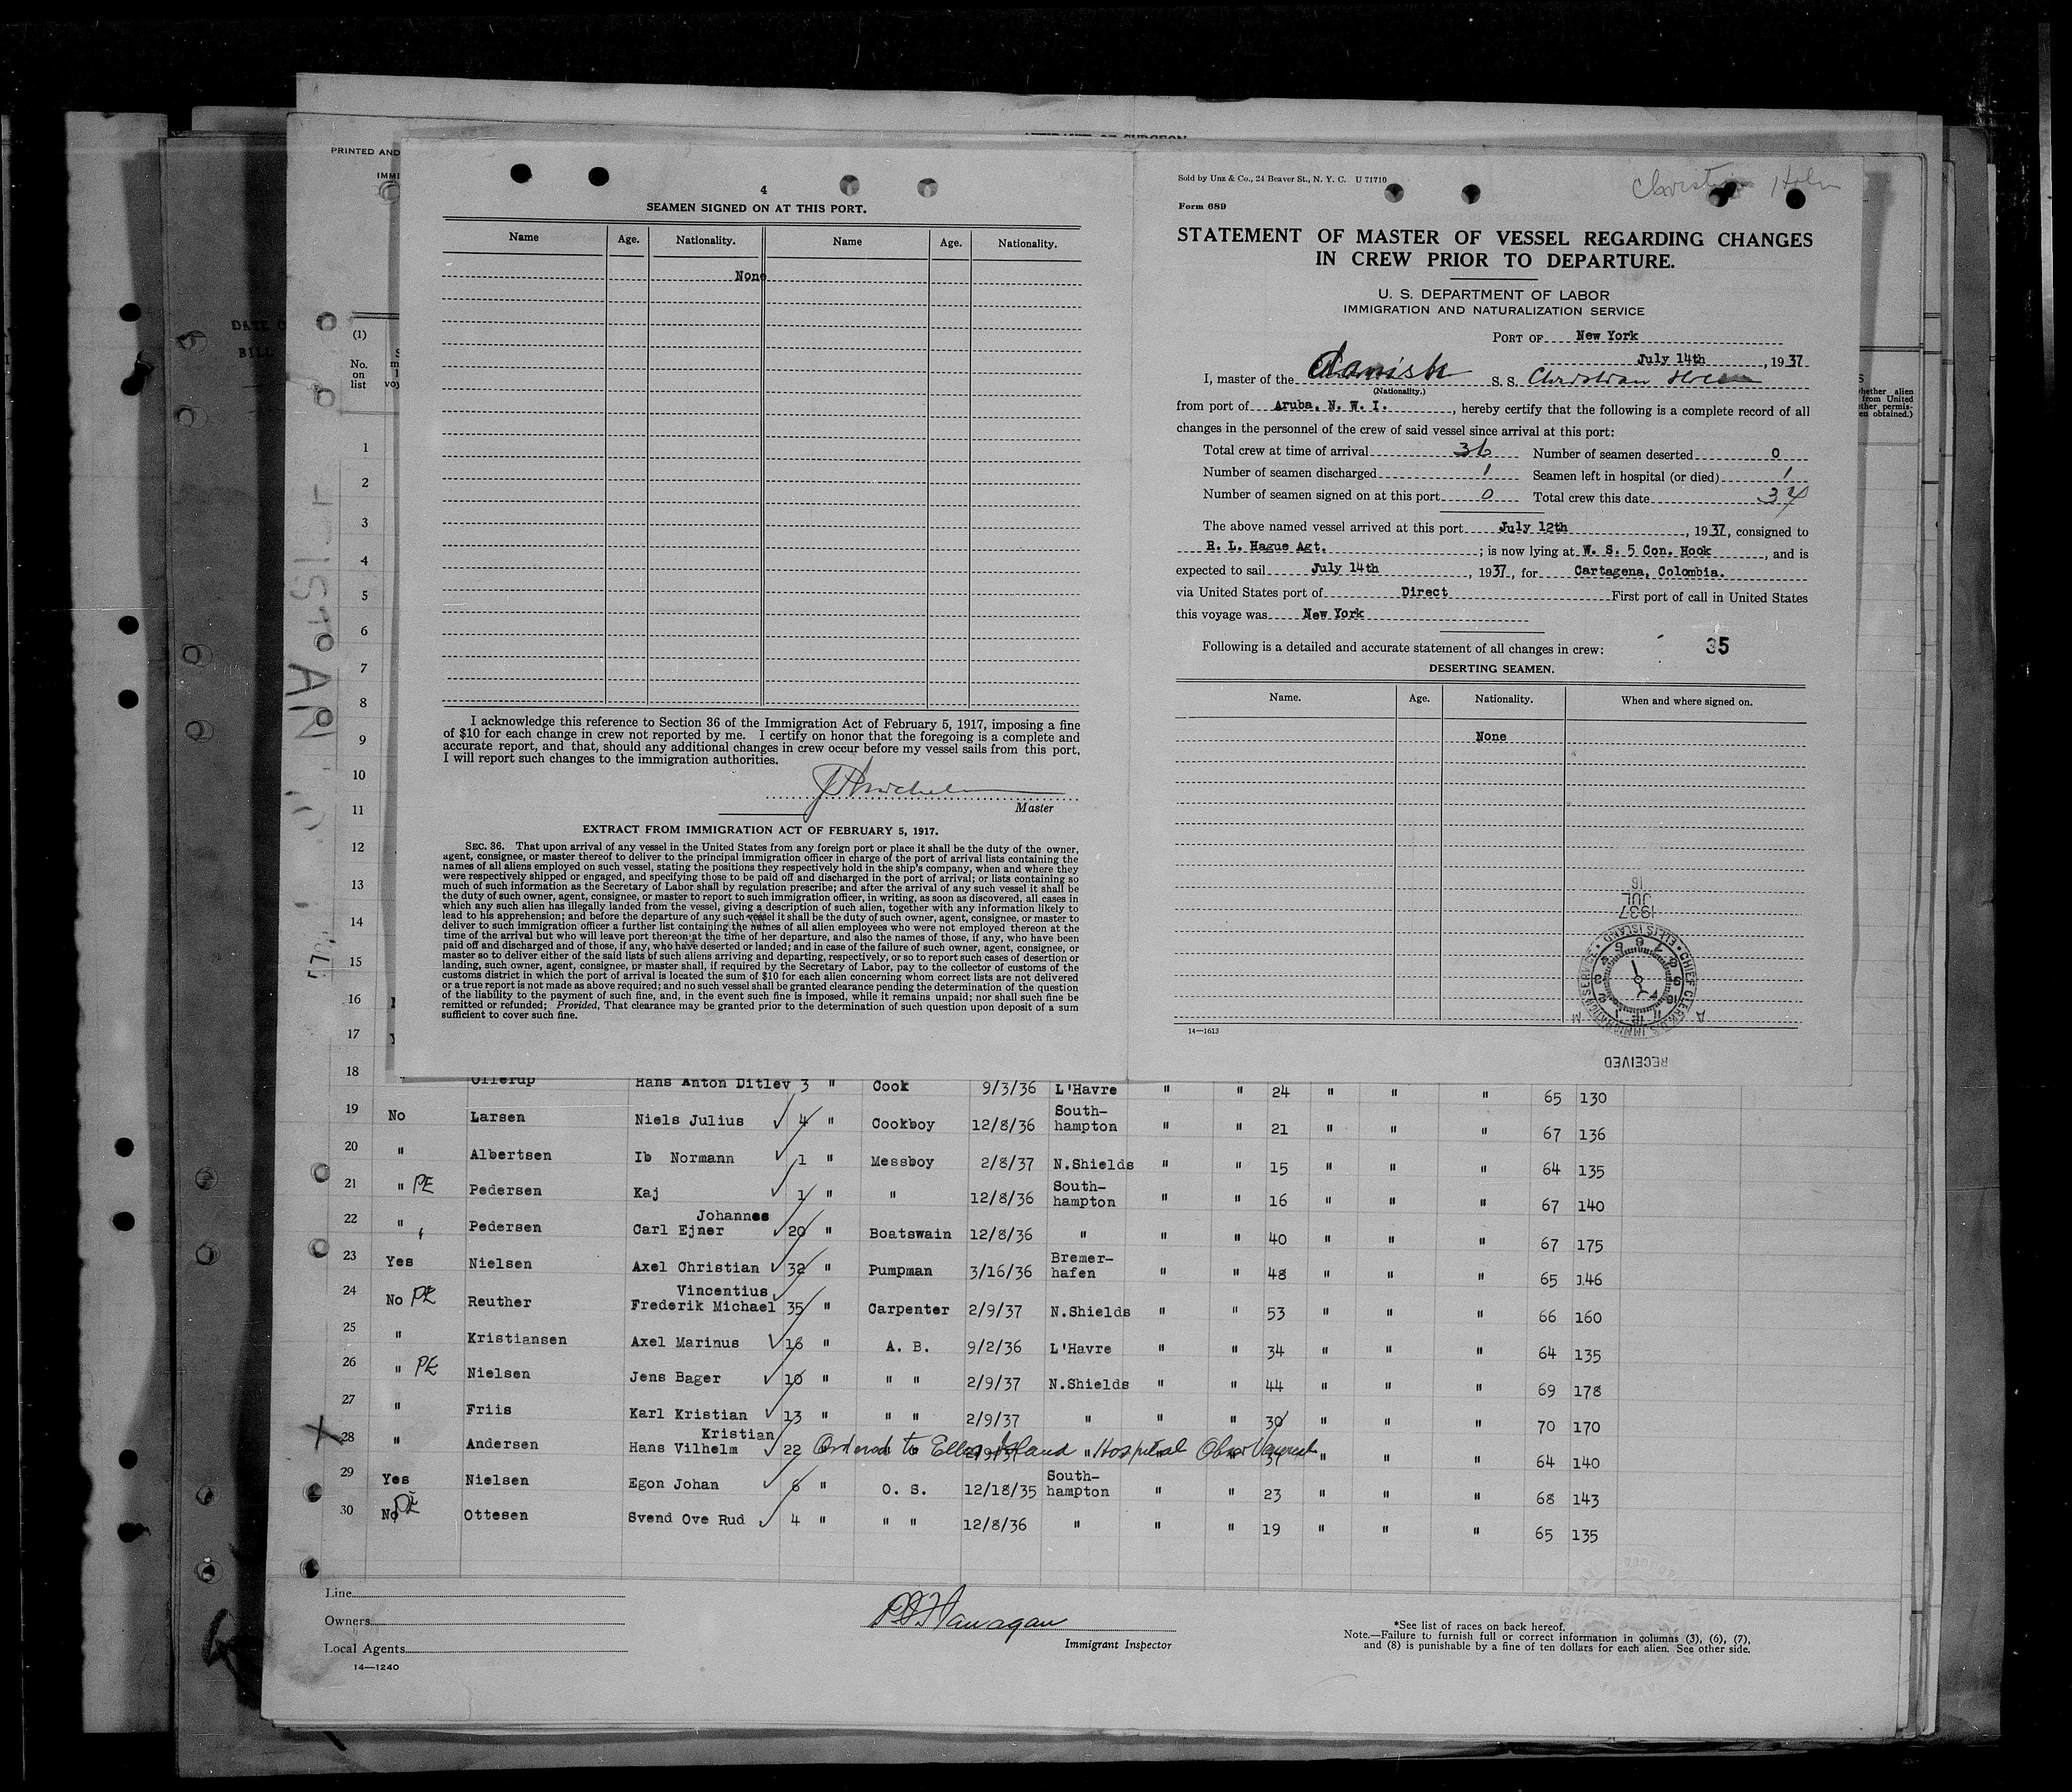 PRINTED AND
IMMI
DATE O
BILL
(1)
No.
on
list
4
SEAMEN SIGNED ON AT THIS PORT.
Name Age. Nationality. Name Age. Nationality.
None
I acknowledge this reference to Section 36 of the Immigration Act of February 5, 1917, imposing a fine
of $10 for each change in crew not reported by me. I certify on honor that the foregoing is a complete and
accurate report, and that, should any additional changes in crew occur before my vessel sails from this port,
I will report such changes to the immigration authorities.
Master
EXTRACT FROM IMMIGRATION ACT OF FEBRUARY 5, 1917.
SEC. 36. That upon arrival of any vessel in the United States from any foreign port or place it shall be the duty of the owner,
agent, consignee, or master thereof to deliver to the principal immigration officer in charge of the port of arrival lists containing the
names of all aliens employed on such vessel, stating the positions they respectively hold in the ship's company, when and where they
were respectively shipped or engaged, and specifying those to be paid off and discharged in the port of arrival; or lists containing so
much of such information as the Secretary of Labor shall by regulation prescribe; and after the arrival of any such vessel it shall be
the duty of such owner, agent, consignee, or master to report to such immigration officer, in writing, as soon as discovered, all cases in
which any such alien has illegally landed from the vessel, giving a description of such alien, together with any information likely to
lead to his apprehension; and before the departure of any such vessel it shall be the duty of such owner, agent, consignee, or master to
deliver to such immigration officer a further list containing the names of all alien employees who were not employed thereon at the
time of the arrival but who will leave port thereon at the time of her departure, and also the names of those, if any, who have been
paid off and discharged and of those, if any, who have deserted or landed; and in case of the failure of such owner, agent, consignee, or
master so to deliver either of the said lists of such aliens arriving and departing, respectively, or so to report such cases of desertion or
landing, such owner, agent, consignee, or master shall, if required by the Secretary of Labor, pay to the collector of customs of the
customs district in which the port of arrival is located the sum of $10 for each alien concerning whom correct lists are not delivered
or a true report is not made as above required; and no such vessel shall be granted clearance pending the determination of the question
of the liability to the payment of such fine, and, in the event such fine is imposed, while it remains unpaid; nor shall such fine be
remitted or refunded; Provided, That clearance may be granted prior to the determination of such question upon deposit of a sum
sufficient to cover such fine.
Sold by Unz & Co., 24 Beaver St., N. Y. C. U 71710
Christian Holm
Form 689
STATEMENT OF MASTER OF VESSEL REGARDING CHANGES
IN CREW PRIOR TO DEPARTURE.
U. S. DEPARTMENT OF LABOR
IMMIGRATION AND NATURALIZATION SERVICE
PORT OF New York
July 14th, 1937
I, master of the danish S. S. Christian Holm
(Nationality.)
from port of Aruba, N. W. I., hereby certify that the following is a complete record of all
changes in the personnel of the crew of said vessel since arrival at this port:
Total crew at time of arrival 36 Number of seamen deserted 0
Number of seamen discharged 1 Seamen left in hospital (or died) 1
Number of seamen signed on at this port 0 Total crew this date 34
The above named vessel arrived at this port July 12th, 1937, consigned to
R. L. Hague Agt.; is now lying at W. S. 5 Con. Hook, and is
expected to sail July 14th, 1937, for Cartagena, Colombia.
via United States port of Direct First port of call in United States
this voyage was New York
Following is a detailed and accurate statement of all changes in crew: 35
DESERTING SEAMEN.
Name. Age. Nationality. When and where signed on.
None
16
JUL
1937
CHIEF CLERK U.S. IMMIGRATION SERVICE ELLIS ISLAND
A M
RECEIVED
14—1613
hether alien
from United
ther permis-
en obtained.)
1
2
3
4
5
6
7
8
9
10
11
12
13
14
15
16
17
18 Ollerup Hans Anton Ditlev 3 " Cook 9/3/36 L'Havre " " 24 " " " 65 130
19 No Larsen Niels Julius 4 " Cookboy 12/8/36 South-hampton " " 21 " " " 67 136
20 " Albertsen Ib Normann 1 " Messboy 2/8/37 N.Shields " " 15 " " " 64 135
21 " PE Pedersen Kaj 1 " " 12/8/36 South-hampton " " 16 " " " 67 140
22 " Pedersen Johannes Carl Ejner 20 " Boatswain 12/8/36 " " " 40 " " " 67 175
23 Yes Nielsen Axel Christian 32 " Pumpman 3/16/36 Bremer-hafen " " 48 " " " 65 146
24 No PE Reuther Vincentius Frederik Michael 35 " Carpenter 2/9/37 N.Shields " " 53 " " " 66 160
25 " Kristiansen Axel Marinus 16 " A. B. 9/2/36 L'Havre " " 34 " " " 64 135
26 " PE Nielsen Jens Bager 10 " " " 2/9/37 N.Shields " " 44 " " " 69 178
27 " Friis Karl Kristian 13 " " " 2/9/37 " " " 30 " " " 70 170
X 28 " Andersen Kristian Hans Vilhelm 22 Ordered to Ellis Island Hospital Obser Venereal " " " 64 140
29 Yes Nielsen Egon Johan 6 " O. S. 12/18/35 South-hampton " " 23 " " " 68 143
30 No PE Ottesen Svend Ove Rud 4 " " " 12/8/36 " " " 19 " " " 65 135
Line
Owners
Local Agents
14—1240
Flanagan
Immigrant Inspector
*See list of races on back hereof.
Note.—Failure to furnish full or correct information in columns (3), (6), (7),
and (8) is punishable by a fine of ten dollars for each alien. See other side.